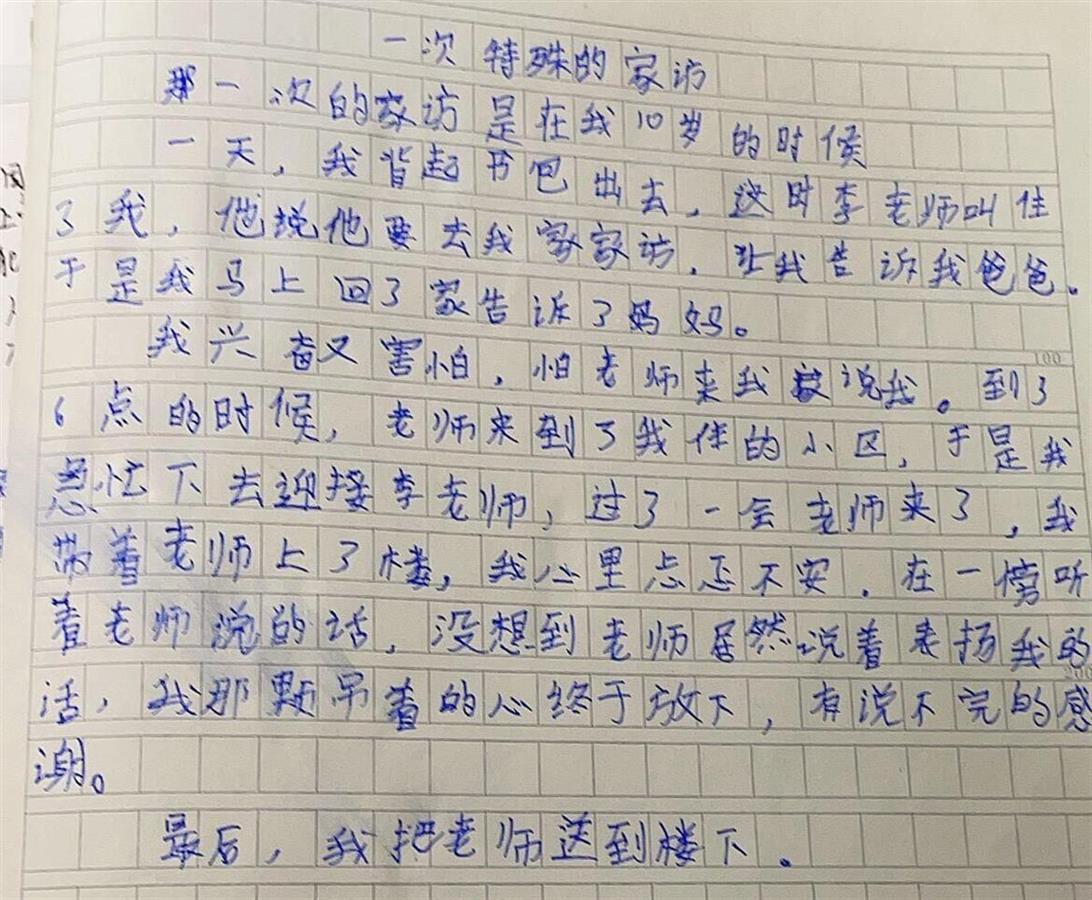 一次特殊的家访
那一次的家访是在我10岁的时候
一天，我背起书包出去，这时李老师叫住
了我，他说他要去我家家访，让我告诉我爸爸。
于是我马上回了家告诉了妈妈。
我兴奋又害怕，怕老师来我家说我。到了
100
6点的时候，老师来到了我住的小区，于是我
急忙下去迎接李老师，过了一会老师来了，我
带着老师上了楼，我心里忐忑不安．在一傍听
着老师说的话，没想到老师居然说着表扬我的
200
话，我那颗吊着的心终于放下，有说不完的感
谢。
最后，我把老师送到楼下．